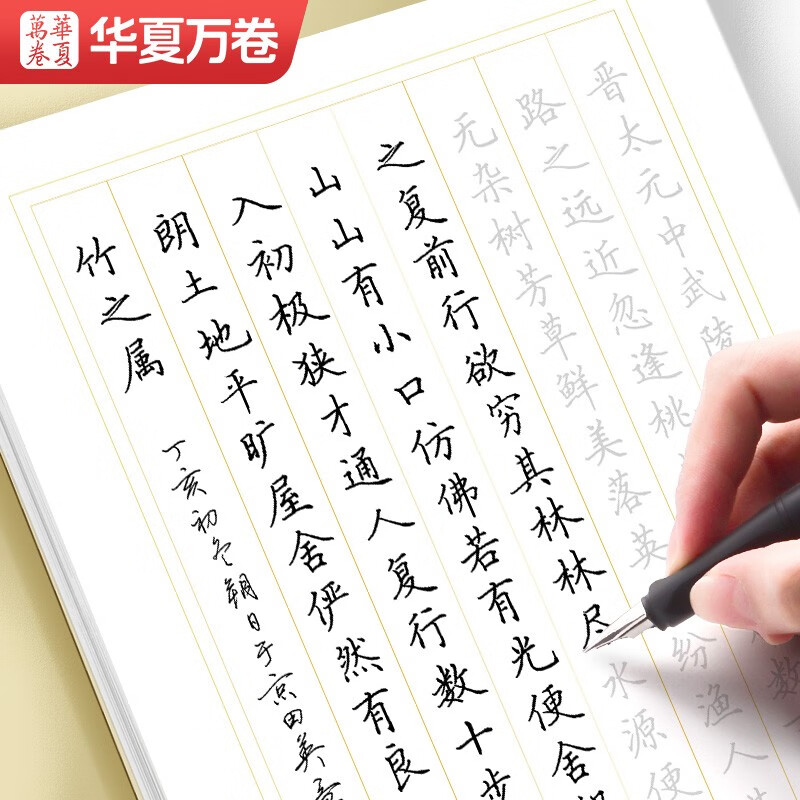 華夏
萬卷
华夏万卷
晋太元中武陵
路之远近忽逢桃
无杂树芳草鲜美落英
纷渔人
之复前行欲穷其林林尽水源便
山山有小口仿佛若有光便舍
入初极狭才通人复行数十步
朗土地平旷屋舍俨然有良
竹之属
丁亥初冬朔日于京田英章